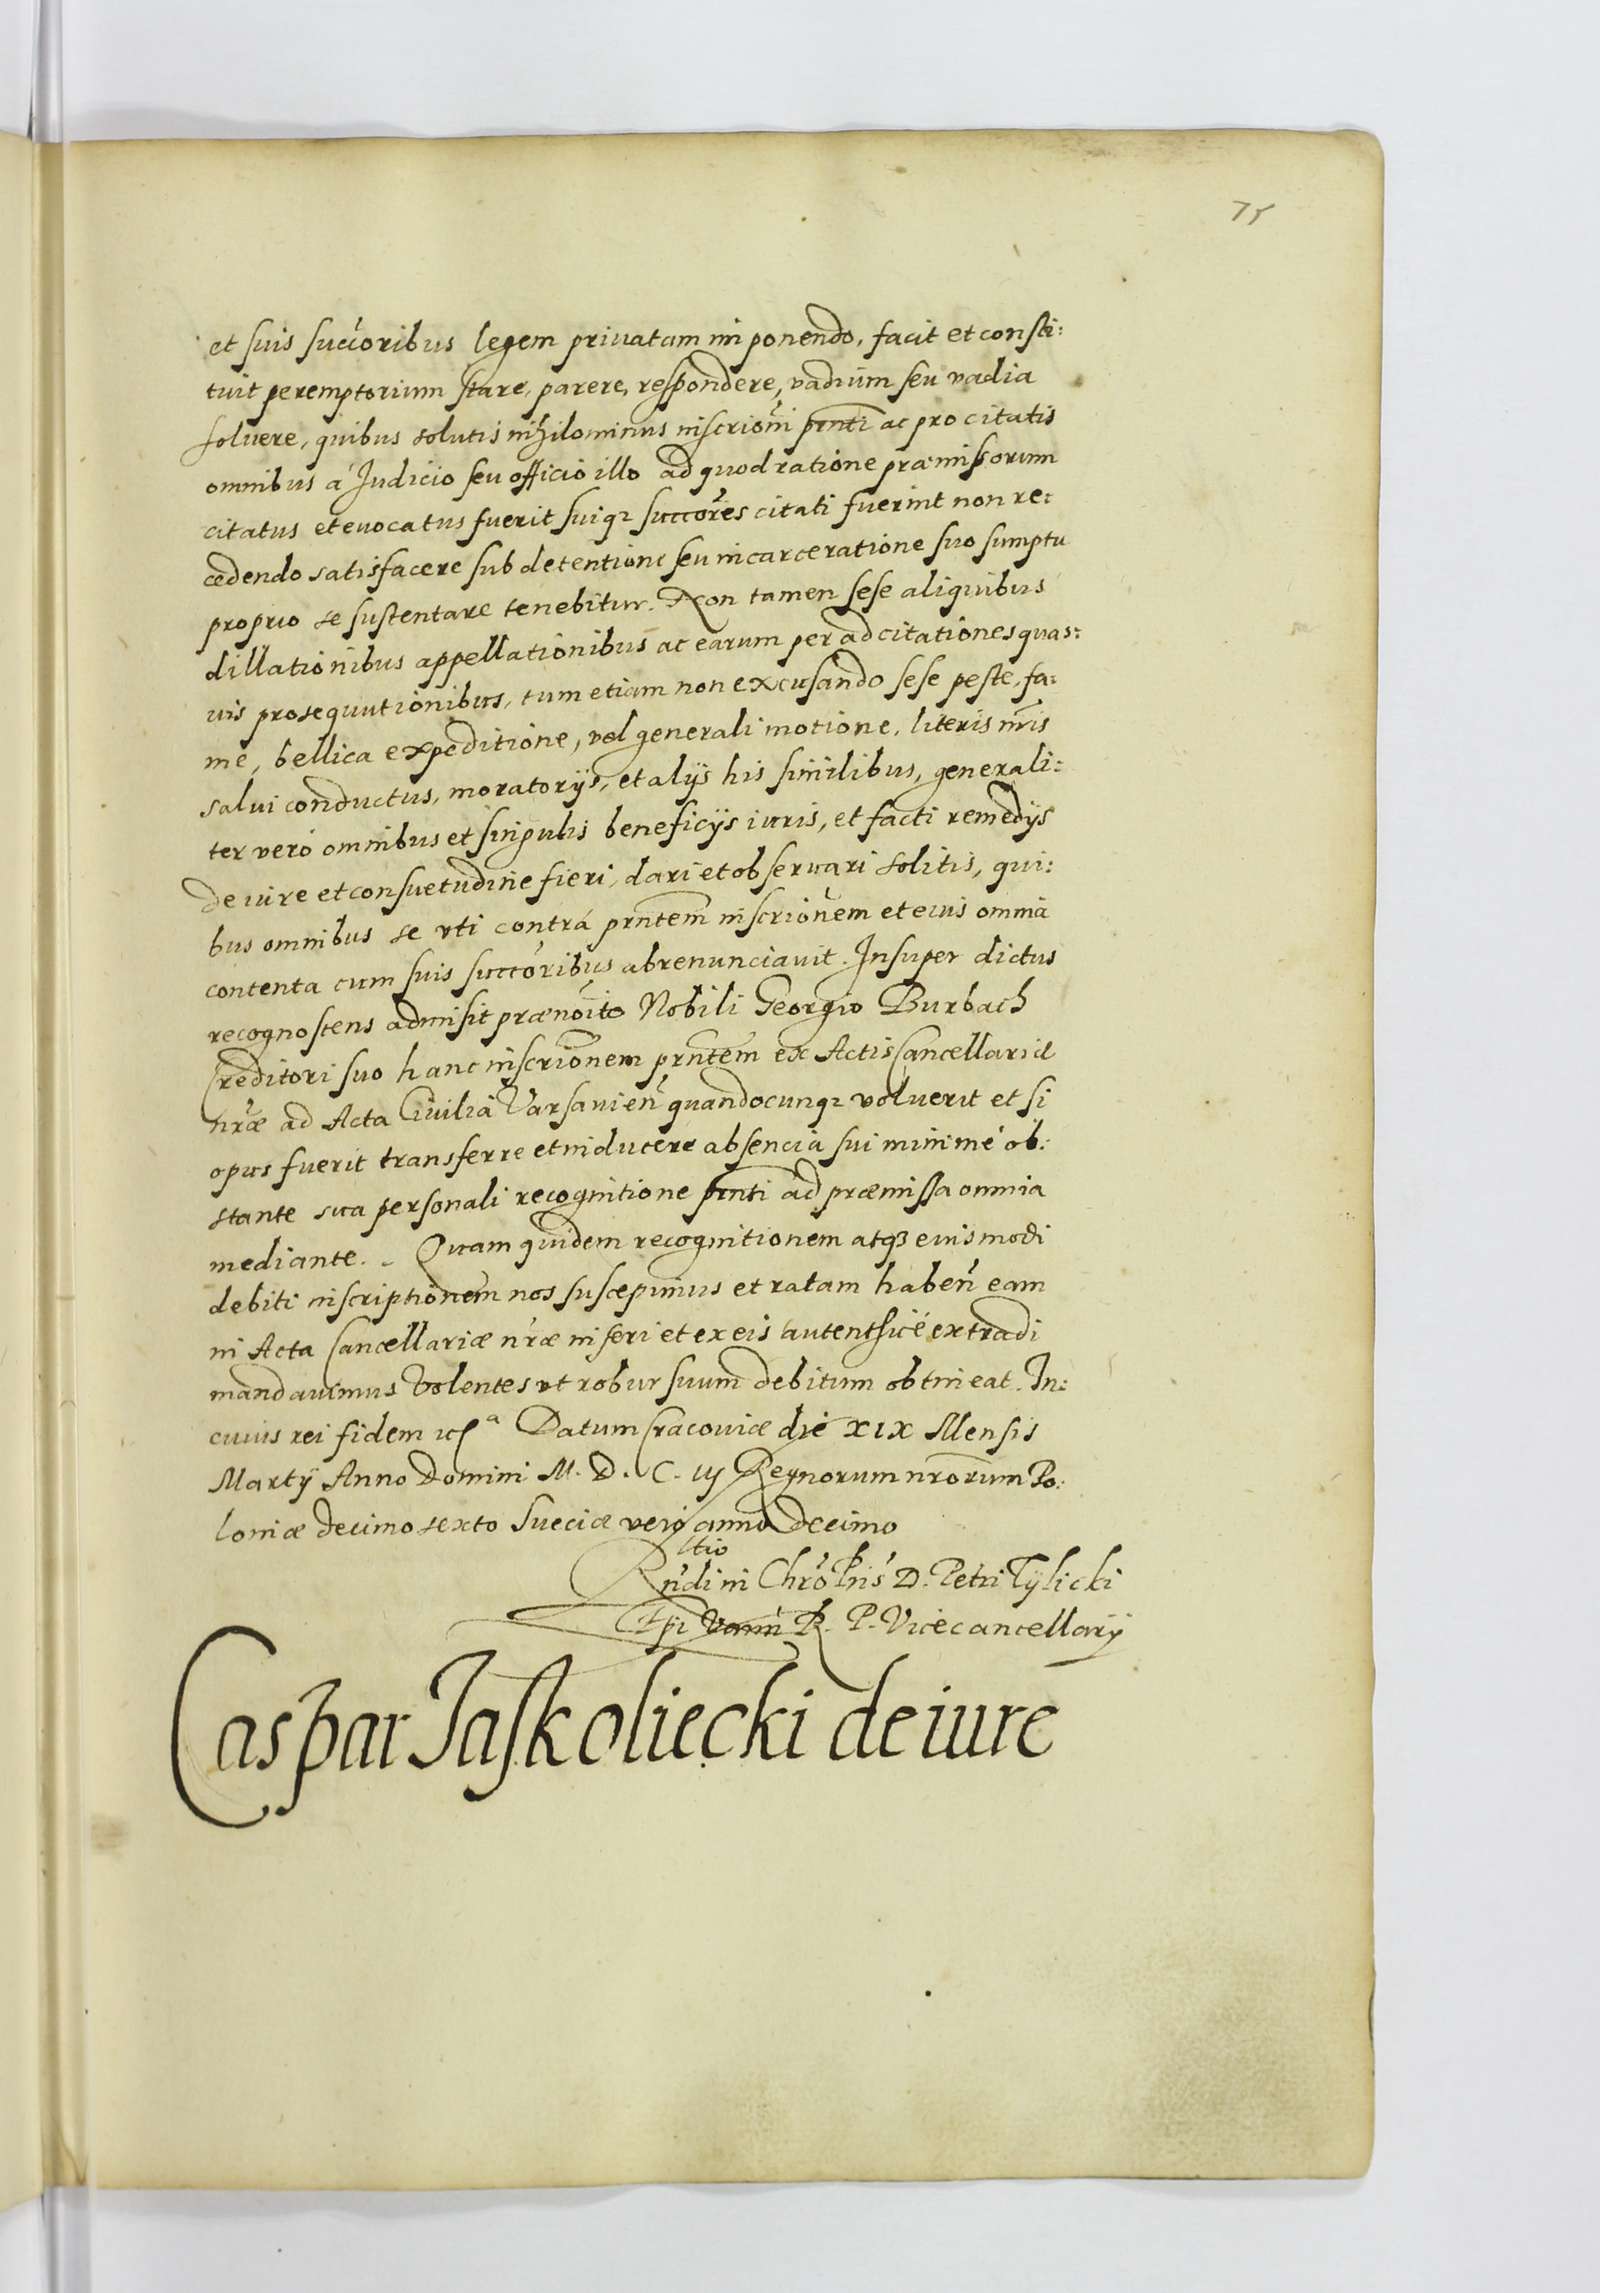 75
et suis succoribus legem priuatam imponendo, facit et consti:
tuit peremptorium stare, parere, respondere, vadium seu vadia
soluere, quibus solutis nihilominus inscrioni prnti ac pro citatis
omnibus á Judicio seu officio illo ad quod ratione præmissorum
citatus et euocatus fuerit suiq3 succores citati fuerint non re:
cedendo satisfacere sub detentione seu incarceratione suo sumptu
proprio se sustentare tenebitur. Non tamen sese aliquibus
dillationibus appellationibus ac earum per adcitationes quas:
uis prosequutionibus, tum etiam non excusando sese peste, fa:
me, bellica expeditione, vel generali motione, literis nris
salui conductus, moratorijs, et alijs his similibus, generali:
ter veró omnibus et singulis beneficijs iuris, et facti remedijs
de iure et consuetudine fieri, dari et obseruari solitis, qui:
bus omnibus se vti contrá prntem inscrionem et eius omnia
contenta cum suis succoribus abrenunciauit. Insuper dictus
recognoscens admisit prænoito Nobili Georgio Burbach
Creditori suo hanc inscrionem prntem ex Actis Cancellariæ
nræ ad Acta Ciuilia Varsauien quandocunq3 voluerit et si
opus fuerit transferre et inducere absencia sui minimé ob:
stante sua personali recognitione prnti ad præmissa omnia
mediante. Quam quidem recognitionem atq3 eiusmodi
debiti inscriptionem nos suscepimus et ratam haben eam
in Acta Cancellariæ nræ inseri et ex eis autenthicé extradi
mandauimus Volentes vt robur suum debitum obtineat. In:
cuius rei fidem etc a Datum Cracouiæ die XIX Mensis
Martij Anno Domini M. D. C. iij Regnorum nrorum Po:
loniæ decimo sexto Sueciæ vero anno decimo
Rltio
Rndi in Chro Pris D. Petri Tÿlicki
Epi Varm R. P. Vicecancellarij
Caspar Jaskoliecki de iure